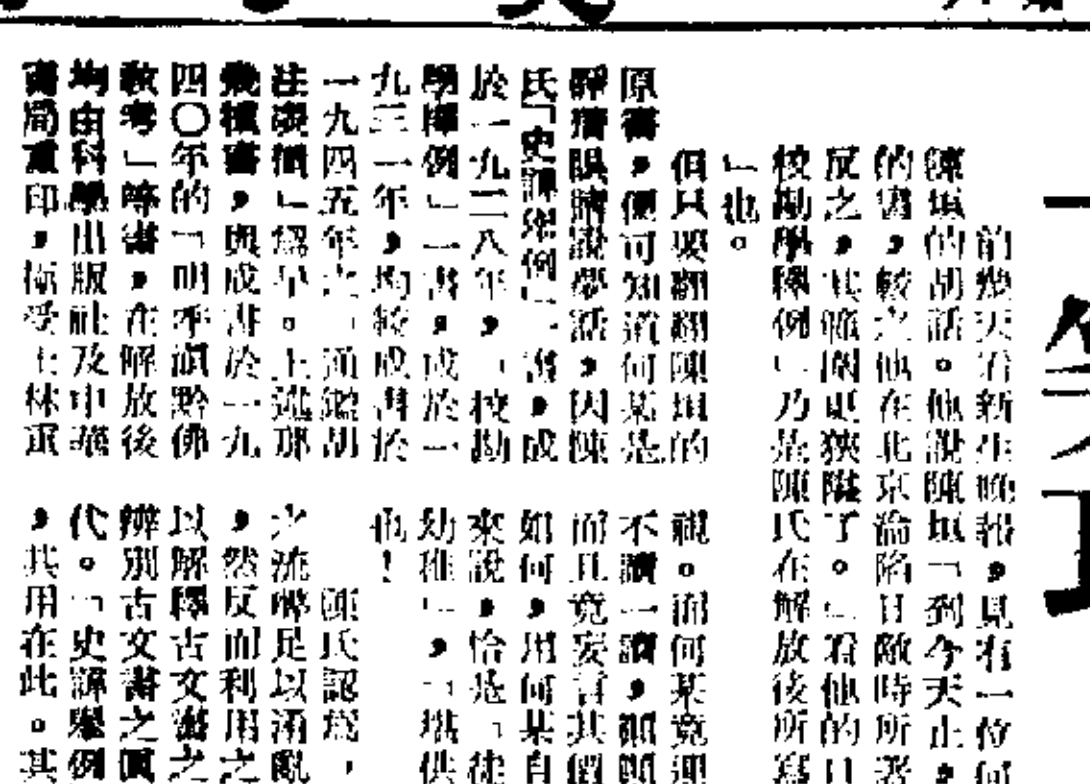 前幾天看新生晚報，見有一位何
陳垣的胡話。他說陳垣「到今天止，
的書，較之他在北京淪陷日敵時所著
反之，其範圍更狹隘了。」看他的口
校勘學釋例」乃是陳氏在解放後所寫
」也。
但只要翻翻陳垣的
原書，便可知道何某是
瞎說夢話，因陳
氏「史諱舉例」一書，成
於一九二八年，「校勘
學釋例」一書，成於一
九三一年，均較成書於
一九四五年之「通鑑胡
注表微」爲早。上述那
幾種書，與成書於一九
四〇年的「明季滇黔佛
敎考」等書，在解放後
均由科學出版社及中華
書局重印，極受士林重
視。而何某竟連
不讀一讀，顢頇
而且竟妄言其價
如何，用何某自
來說，恰是「徒
幼稚」，「堪供
也！
陳氏認爲，
之流足以淆亂
，然反而利用之
以解釋古文書之
辨別古文書之眞
代。「史諱舉例
，其用在此。其